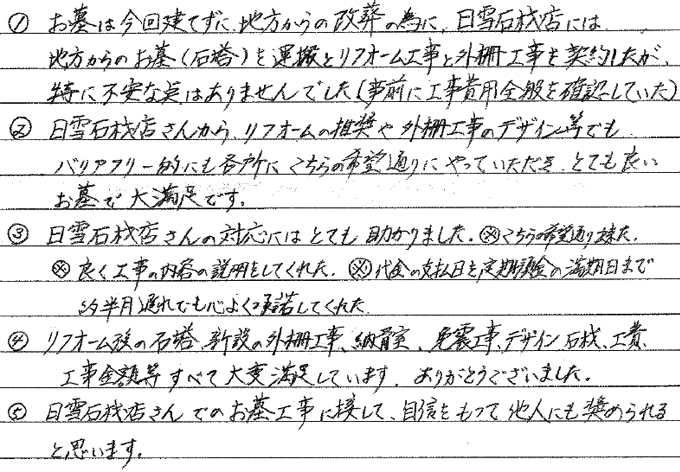 ① お墓は今回建てずに、地方からの改葬の為に、日雪石材店には
地方からのお墓(石塔)を運搬とリフォーム工事と外柵工事を契約したが、
特に不安な点はありませんでした(事前に工事費用全般を確認していた)
② 日雪石材店さんから、リフォームの推奨や外柵工事のデザイン等でも
バリアフリー的にも各所にこちらの希望通りにやっていただき、とても良い
お墓で大満足です。
③ 日雪石材店さんの対応にはとても助かりました。※こちらの希望通り
※良く工事の内容の説明をしてくれた。※代金の支払日を定期預金の満期日まで
半月遅れでも心よく承諾してくれた
④ リフォーム後の石塔、新設の外柵工事、納骨室、免震工事、デザイン石材、工費、
工事金額等すべて大変満足しています。ありがとうございました。
⑤ 日雪石材店さんでのお墓工事に接して、自信をもって他人にも奨められる
と思います。